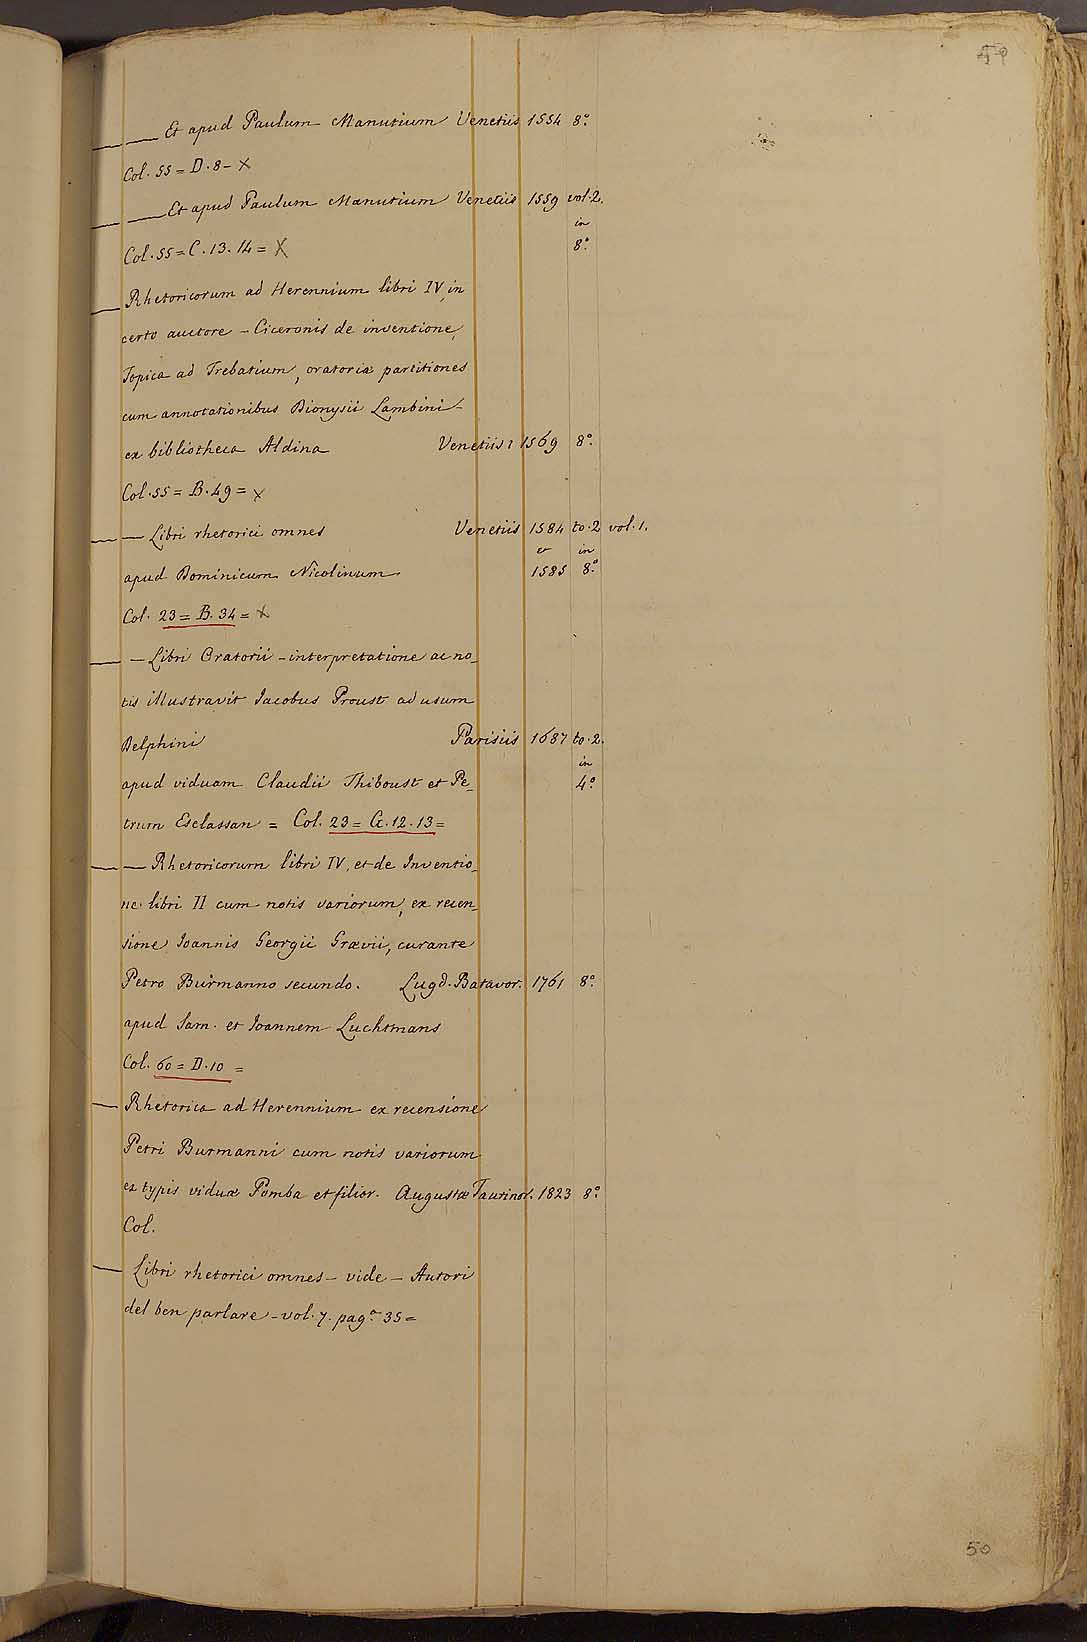 —— Et apud Paulum Manutium Venetiis 1554 8.°
Col. 55 = D. 8 - X
—— Et apud Paulum Manutium Venetiis 1559 vol. 2.
in
Col. 55 = C. 13. 14 = X 8.°
Rhetoricorum ad Herennium libri IV, in
certo auctore - Ciceronis de inventione,
Topica ad Trebatium, oratoriæ partitiones
cum annotationibus Dionysii Lambini -
ex bibliotheca Aldina Venetiis 1569 8.°
Col. 55 = B. 49 = X
— Libri rhetorici omnes Venetiis 1584 to. 2 vol. 1.
et in
apud Dominicum Nicolinum 1585 8.°
Col. 23 = B. 34 = X
— Libri Oratorii - interpretatione ac no_
tis illustravit Iacobus Proust ad usum
Delphini Parisiis 1687 to. 2.
in
apud viduam Claudii Thiboust et Pe_ 4.°
trum Esclassan = Col. 23 = G. 12. 13 =
— Rhetoricorum libri IV, et de Inventio_
ne libri II cum notis variorum, ex recen_
sione Ioannis Georgii Grævii, curante
Petro Burmanno secundo. Lugd. Batavor. 1761 8.°
apud Sam. et Ioannem Luchtmans
Col. 60 = D. 10 =
Rhetorica ad Herennium ex recensione
Petri Burmanni cum notis variorum
ex typis viduæ Pomba et filior. Augustæ Taurinor. 1823 8.°
Col.
Libri rhetorici omnes - vide - Autori
del ben parlare - vol. 7. pag.ª 35 =
50